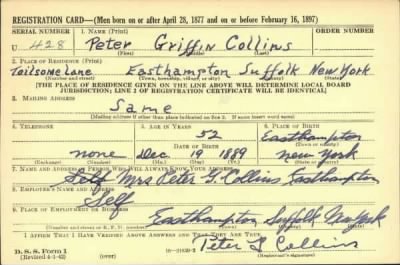 REGISTRATION CARD—(Men born on or after April 28, 1877 and on or before February 16, 1897)
SERIAL NUMBER 1. NAME (Print) ORDER NUMBER
U 428 Peter Griffin Collins
(First) (Middle) (Last)
2. PLACE OF RESIDENCE (Print)
Easthampton Suffolk New York
(Number and street) (Town, township, village, or city) (County) (State)
[THE PLACE OF RESIDENCE GIVEN ON THE LINE ABOVE WILL DETERMINE LOCAL BOARD
JURISDICTION; LINE 2 OF REGISTRATION CERTIFICATE WILL BE IDENTICAL]
3. MAILING ADDRESS
Same
(Mailing address if other than place indicated on line 2. If same insert word same)
4. TELEPHONE 5. AGE IN YEARS 6. PLACE OF BIRTH
52 Easthampton
DATE OF BIRTH (Town or county)
none Dec 19 1889 New York
(Exchange) (Number) (Mo.) (Day) (Yr.) (State or country)
7. NAME AND ADDRESS OF PERSON WHO WILL ALWAYS KNOW YOUR ADDRESS
Mrs Peter G. Collins Easthampton
8. EMPLOYER'S NAME AND ADDRESS
Self
9. PLACE OF EMPLOYMENT OR BUSINESS
Easthampton Suffolk New York
(Number and street or R. F. D. number) (Town) (County) (State)
I AFFIRM THAT I HAVE VERIFIED ABOVE ANSWERS AND THAT THEY ARE TRUE.
D. S. S. Form 1 Peter G Collins
(Revised 4-1-42) (over) (Registrant's signature)